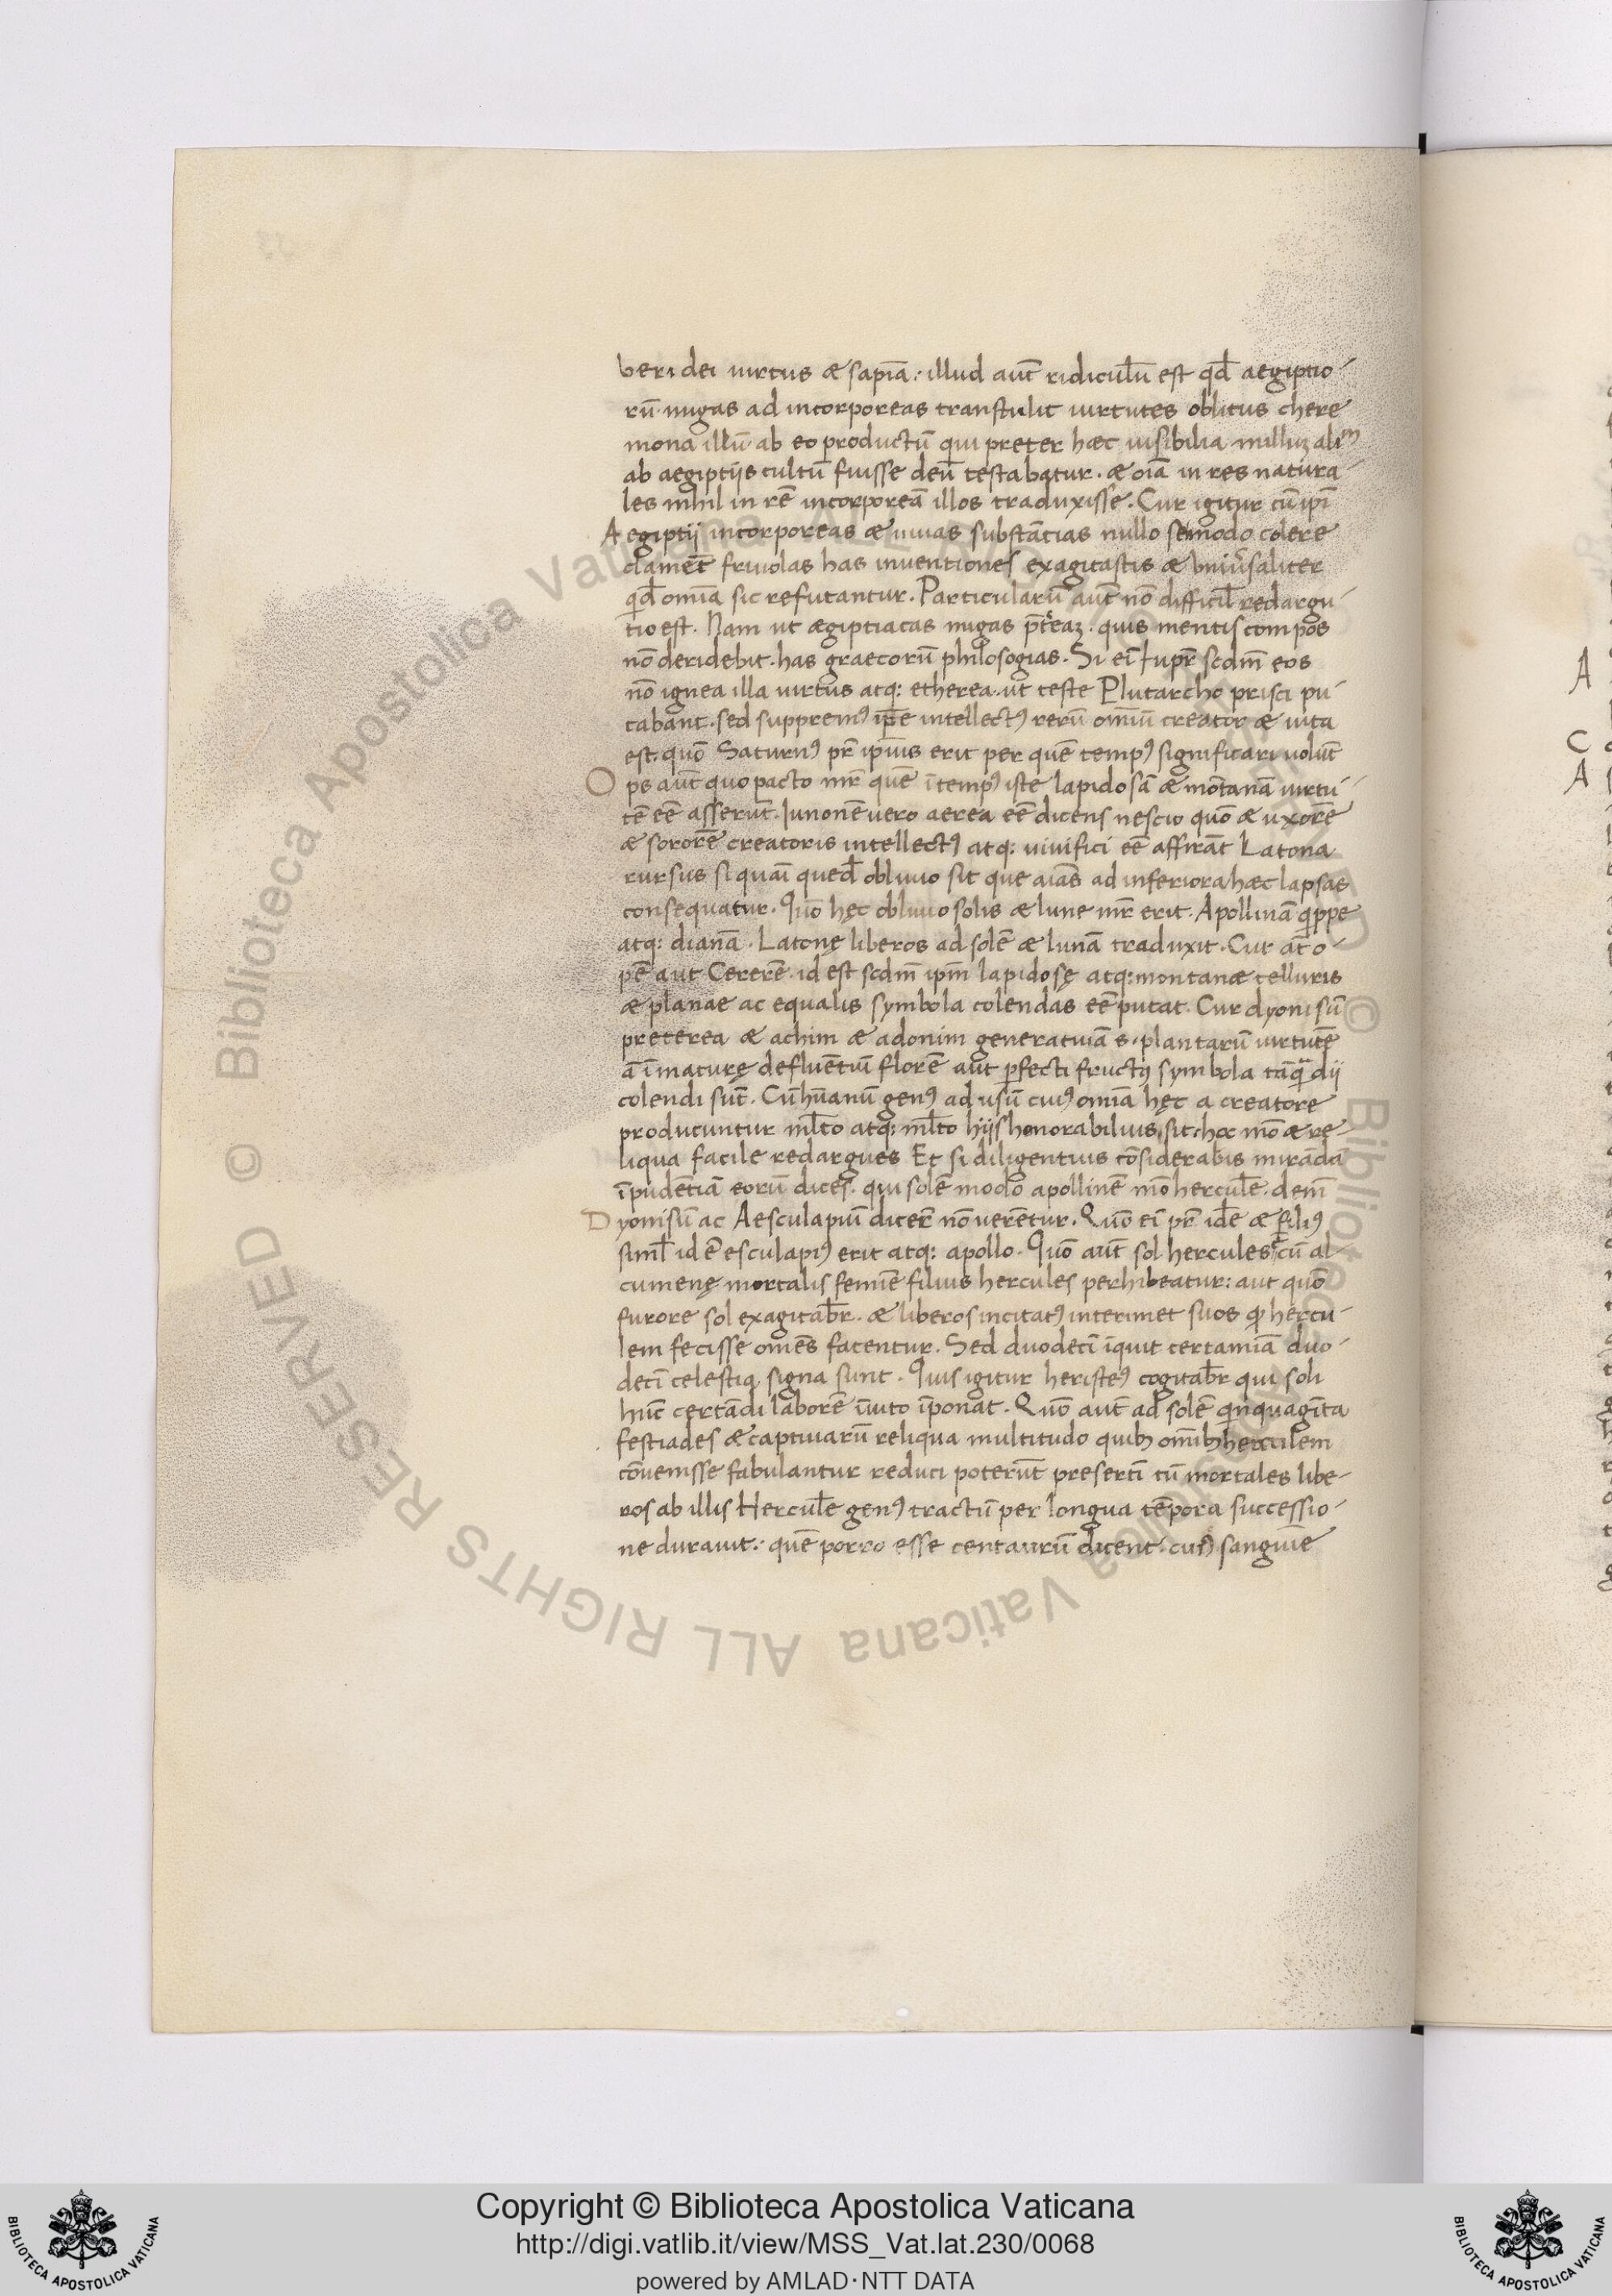 veri dei uirtus & sapīa: illud aut̄ ridicul̄u est qd̄ aegiptio-
rū nugas ad incorporeas transtulit uirtutes oblitus chere
mona illū ab eo productū qui preter hæc uisibilia nullum aliū
ab aegiptijs cultū fuisse deū testabatur. & oīa in res natura-
les nihil in rē incorporeā illos traduxisse. Cur igitur cū ipī
Aegiptij incorporeas & uiuas substātias nullo se modo colere
clamēt friuolas has inuentiones exagitastis & vniūsaliter
qd̄ omīa sic refutantur. Particularū aut̄ nō difficil̄ redargu-
tio est. Nam ut ægiptiacas nugas pt̄ream. quis mentis compos
nō deridebit. has graecorū philosogias. Si eī Jupr̄ scdm̄ eos
nō ignea illa uirtus atq: etherea. ut teste Plutarcho prisci pu-
tabant. sed suppremꝰ ip̄e intellectꝰ rerū omiū creator & uita
est. quō Saturnꝰ pr̄ ipīus erit per quē tempꝰ significari uolūt
Ops aut̄ quo pacto mr̄ quē ī tempꝰ iste lapidosā & mōtanā uirtu-
tē eē asserūt. Junonē uero aerea eē dicens nescio quō & uxorē
& sororē creatoris intellectꝰ atq: uiuifici eē affirāt Latona
rursus si quā̄ qued̄ obliuio sit que aiās ad inferiora hæc lapsas
consequatur. Quō hęc obliuio solis & lune mr̄ erit. Apollinā qippe
atq: dianā. Latonę liberos ad solē & lunā traduxit. Cur āt o-
pē aut Cererē. id est scdm̄ ipm̄ lapidosę atq: montanæ telluris
& planae ac equalis symbola colendas eē putat. Cur dyonisū
preterea & achim & adonim generatiuā s. plantarū uirtutē
ā īmaturę defluētiū florē aut pfecti fructꝰ symbola tāq̄ dij
colendi sūt. Cū hūanū genꝰ ad usū cuiꝰ omīa hęc a creatore
producuntur ml̄to atq: ml̄to hijs honorabilius sit. hoc mō & re-
liqua facile redargues Et si diligentius cōsiderabis mirāda
īpudētiā eorū dices. qui solē modo apollinē mō hercul̄e. dem̄
Dyonisū ac Aesculapiū dicer̄ nō uerētur. Quō eī pr̄ idē & filiꝰ
siml̄ id ē esculapiꝰ erit atq: apollo. Quō aut̄ sol hercules cū al-
cumenę mortalis femīe filius hercules perhibeatur: aut quō
furore sol exagitabr̄. & liberos incitatꝰ interimet suos qd hercu-
lem fecisse omēs fatentur. Sed duodecī īquit certamīa duo-
decī celestia signa sunt. Quis igitur heristeꝰ cogitabr̄ qui soli
hūc certādi laborē īuito īponat. Quō aut̄ ad solē qinquagīta
festiades & captiuarū reliqua multitudo quibꝫ omībꝫ herculem
cōuenisse fabulantur reduci poterūt presertī cū mortales libe-
ros ab illis Hercul̄e genꝰ tractū per longua tēpora successio-
ne durauit: quē porro esse centaurū dicent. cuiꝰ sanguīe
© Biblioteca Apostolica Vaticana ALL RIGHTS RESERVED
Copyright © Biblioteca Apostolica Vaticana
http://digi.vatlib.it/view/MSS_Vat.lat.230/0068
powered by AMLAD·NTT DATA
BIBLIOTECA APOSTOLICA VATICANA
BIBLIOTECA APOSTOLICA VATICANA